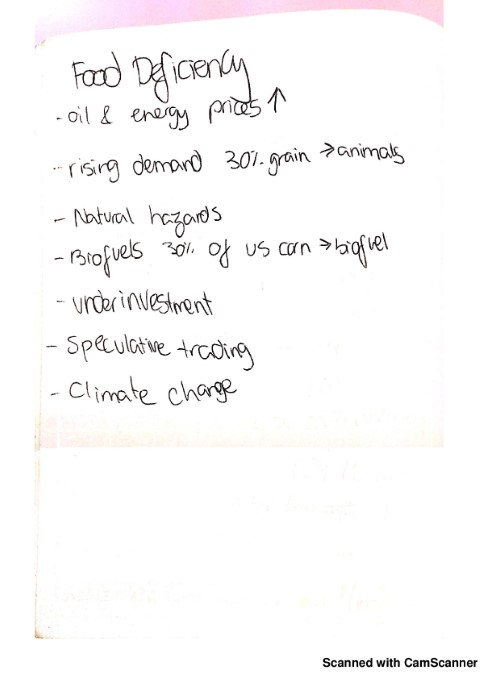 Food Deficiency
- oil & energy prices ↑
- rising demand 30% grain → animals
- Natural hazards
- Biofuels 30% of us corn → biofuel
- underinvestment
- Speculative trading
- Climate change
Scanned with CamScanner